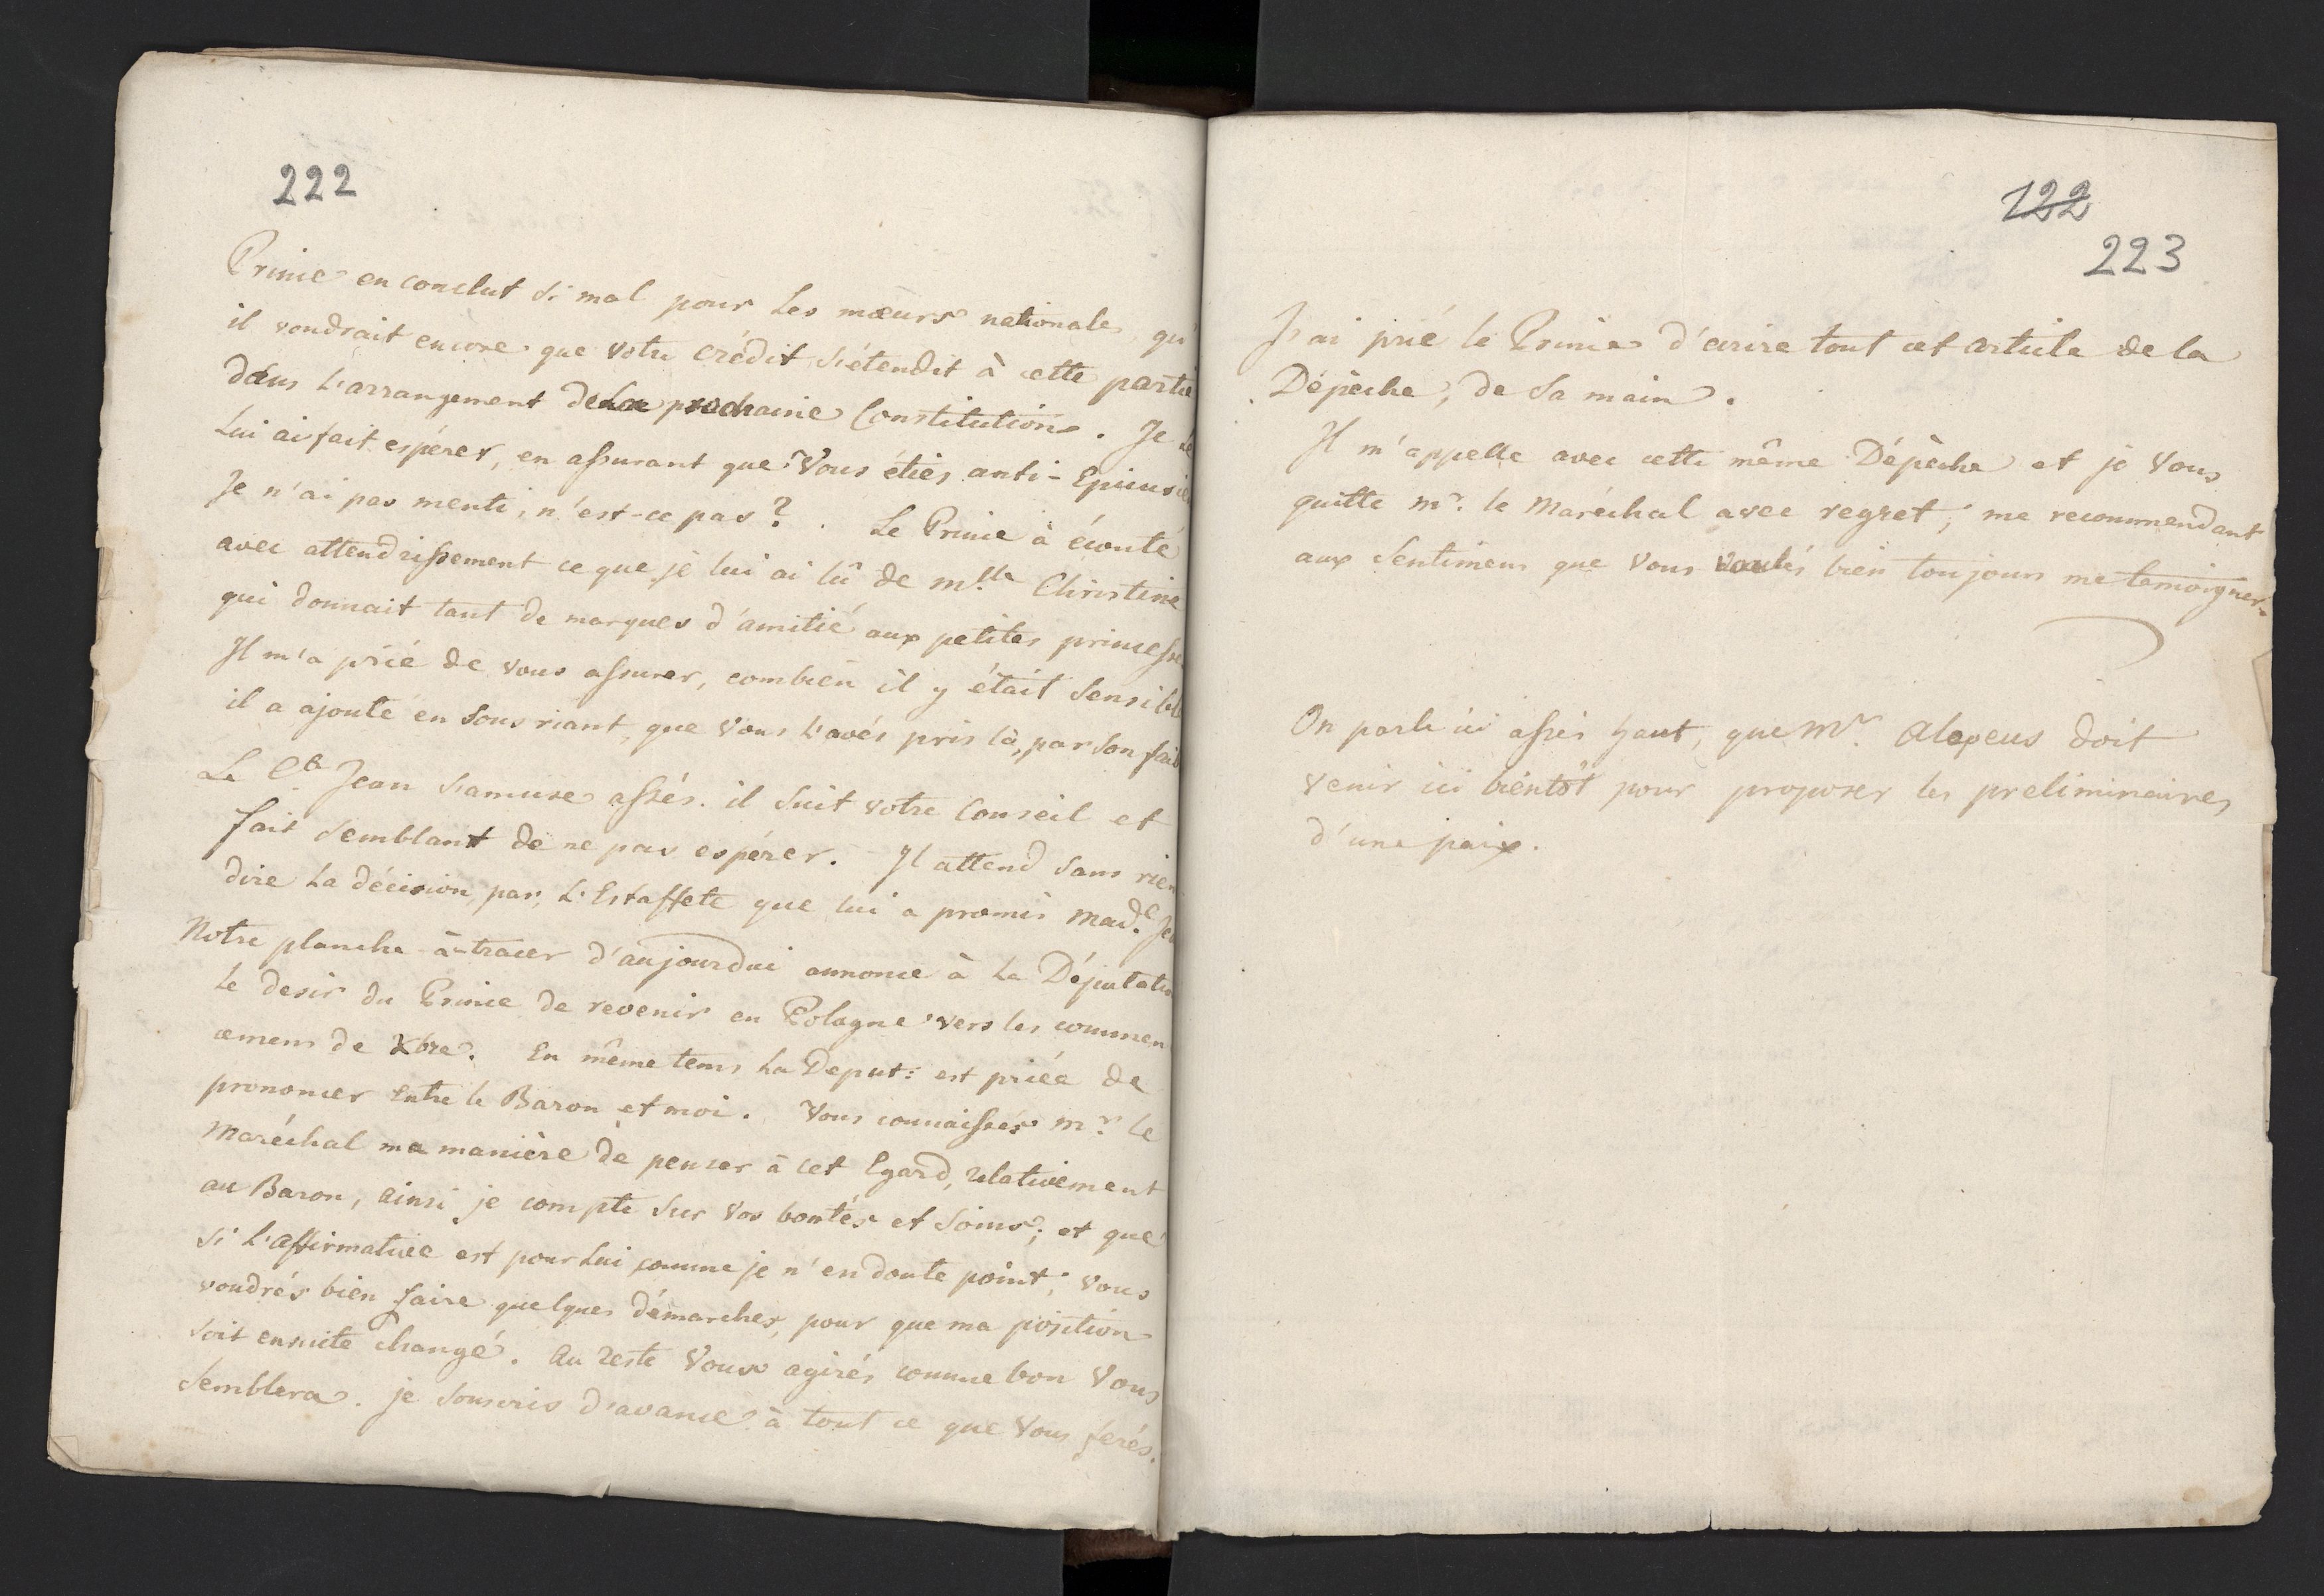 222
Prince en conclut si mal pour les mœurs nationales, qu'
il voudrait encore que votre crédit s'étendit à cette partie
dans l'arrangement dela prochaine Constitution. Je le
lui ai fait espérer, en assurant que Vous étiés anti-Epicurie
Je n'ai pas menti, n'est-ce pas? Le Prince à écouté
avec attendrissement ce que je lui ai lû de Mlle Christine
qui donnait tant de marques d'amitié aux petites princesse
Il m'a prié de vous assurer, combien il y était sensible
il a ajouté en sous riant, que vous l'avés pris là, par son faib
Le Cte Jean s'amuse assés. il suit votre Conseil et
fait semblant de ne pas espérer. Il attend sans rien
dire la décision, par l'Estaffete que lui a promis Made
Notre planche à-tracer d'aujourdui annonce à la Députatio
le desir du Prince de revenir en Pologne vers les commen
cemens de Xbre. En même tems la Deput: est priée de
prononcer entre le Baron et moi. Vous connaissés Mr le
Maréchal ma manière de penser à cet Egard, relativement
au Baron, ainsi je compte sur vos bontés et soins; et que
si l'affirmative est pour lui comme je n'en doute point, vous
voudrés bien faire quelques démarches, pour que ma position
soit ensuite changé. Au reste Vous agirés comme bon Vous
semblera. je souscris d'avance à tout ce que Vous ferés.
122
223
J'ai prié le Prince d'ecrire tout cet article de la
Dépèche, de sa main.
Il m'appelle avec cette même Dépèche et je Vous
quitte Mr. le Maréchal avec regret, me recommendant
aux sentimens que Vous voulés bien toujours me temoigner.
On parle ici assés haut, que Mr. Alopeus doit
venir ici bientôt pour proposer les preliminaires
d'une paix.